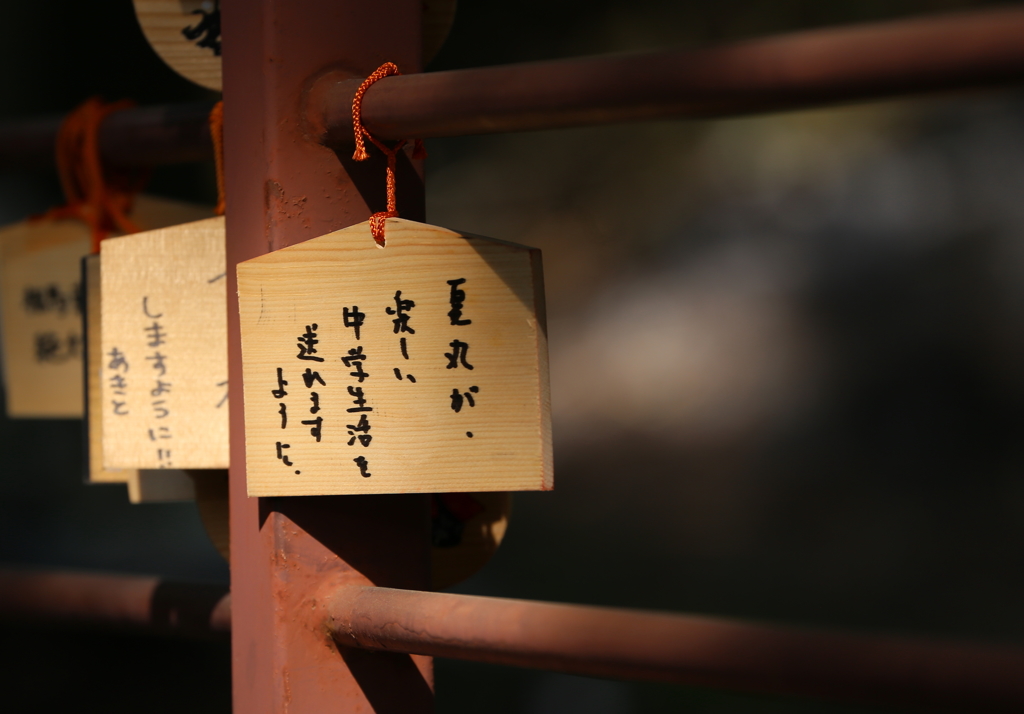 夏丸が、
楽しい
中学生活を
送れます
ように。
しますように!!
あきと